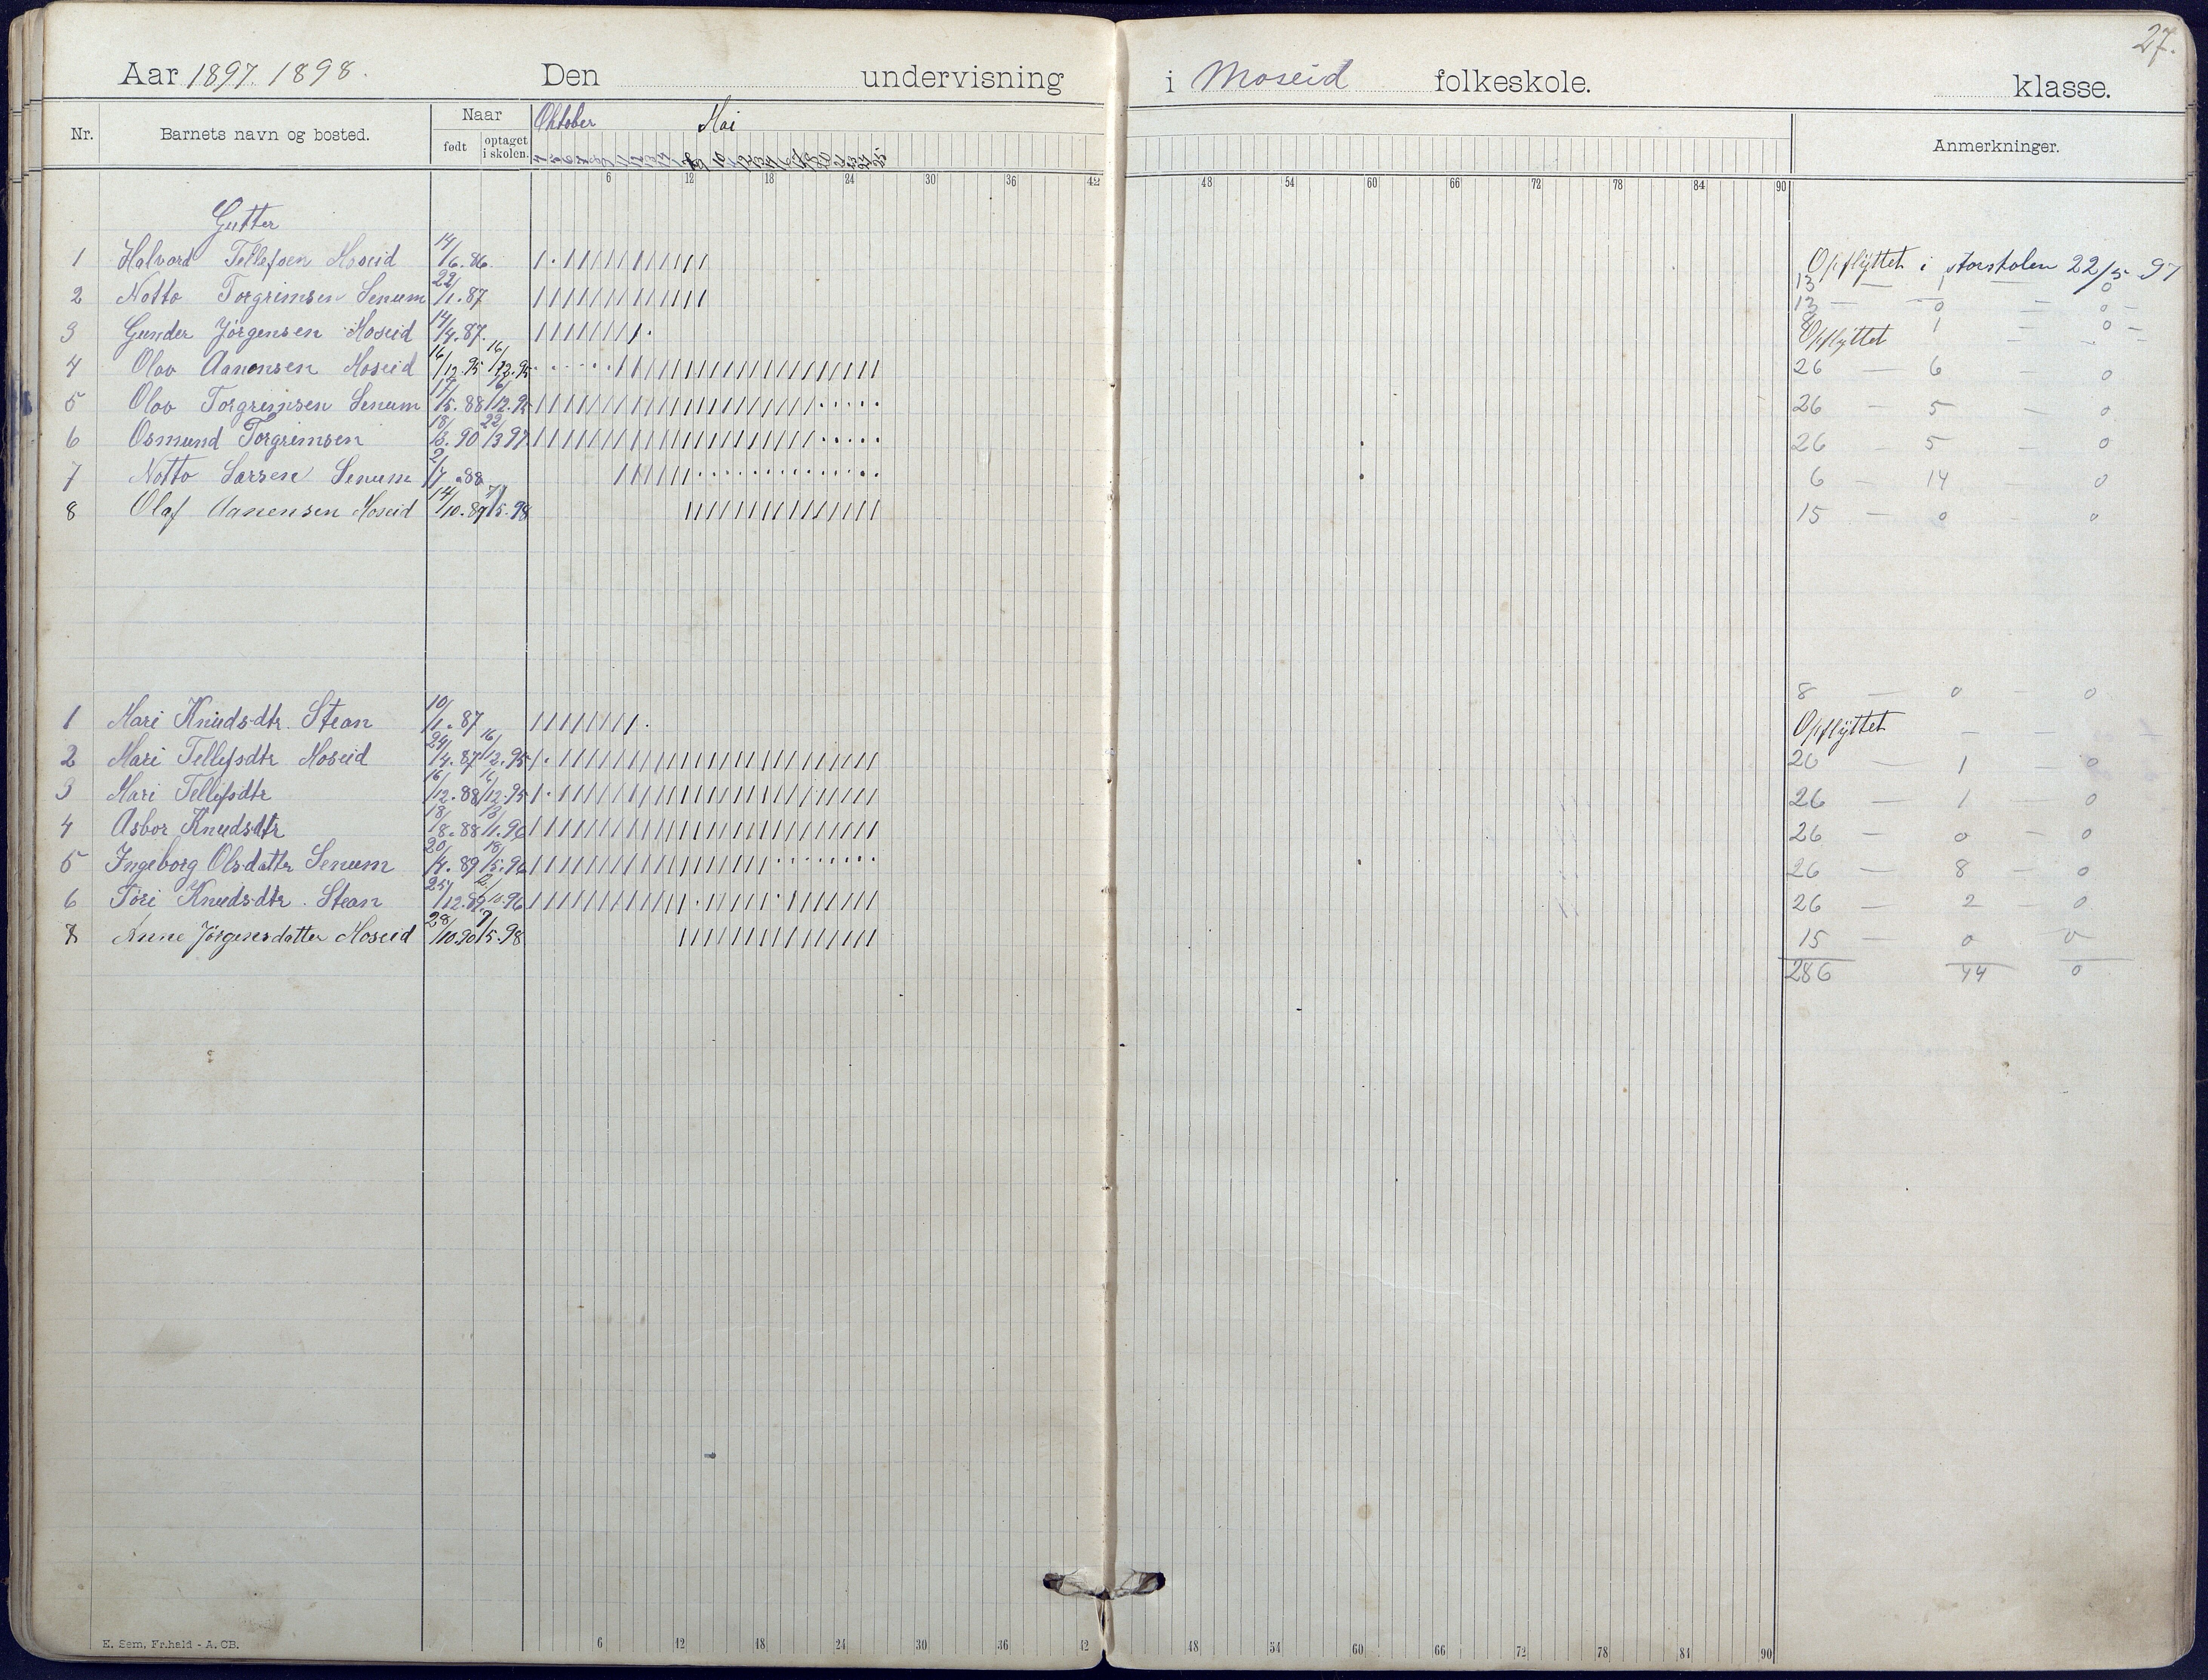 27.
Aar 1897. 1898. Den undervisning i Moseid folkeskole. klasse.
Nr. Barnets navn og bosted. Naar født optaget i skolen. Oktober Mai Anmerkninger.
6 12 18 24 30 36 42 48 54 60 66 72 78 84 90
Gutter
1 Halvard Tellefsen Moseid 14/6. 86. Opflyttet i storskolen 22/5 97
13 — 1 — 0
2 Notto Torgrimsen Senum 22/1. 87 13 — 0 — 0 —
3 Gunder Jörgensen Moseid 14/4. 87. 8 1 — 0 —
Opflyttet
4 Olav Aanensen Moseid 16/12. 95 16/12. 95 26 — 6 — 0
5 Olav Torgrimsen Senum 17/5. 88 16/12. 95 26 — 5 — 0
6 Osmund Torgrimsen 18/3. 90 22/3 97 26 — 5 — 0
7 Notto Larsen Senum 2/7. 88 6 — 14 — 0
8 Olaf Aanensen Moseid 14/10. 89 7/5. 98 15 — 0 — 0
8 — 0 — 0
1 Mari Knudsdtr. Stean 10/1. 87 Opflyttet
2 Mari Tellefsdtr Moseid 24/4. 87 16/12. 95 26 — 1 — 0
3 Mari Tellefsdtr 16/12. 88 16/12. 95 26 — 1 — 0
4 Asbor Knudsdtr 18/8. 88 13/1. 96 26 — 0 — 0
5 Ingeborg Olsdattr Senum 20/4. 89 18/5. 96 26 — 8 — 0
6 Töri Knudsdtr. Stean 25/12. 89 2/10. 96 26 — 2 — 0
8 Anne Jörgensdatter Moseid 28/10. 90 7/5. 98 15 — 0 — 0
286 44 0
E. Sem, Fr.hald - A. CB.
6 12 18 24 30 36 42 48 54 60 66 72 78 84 90